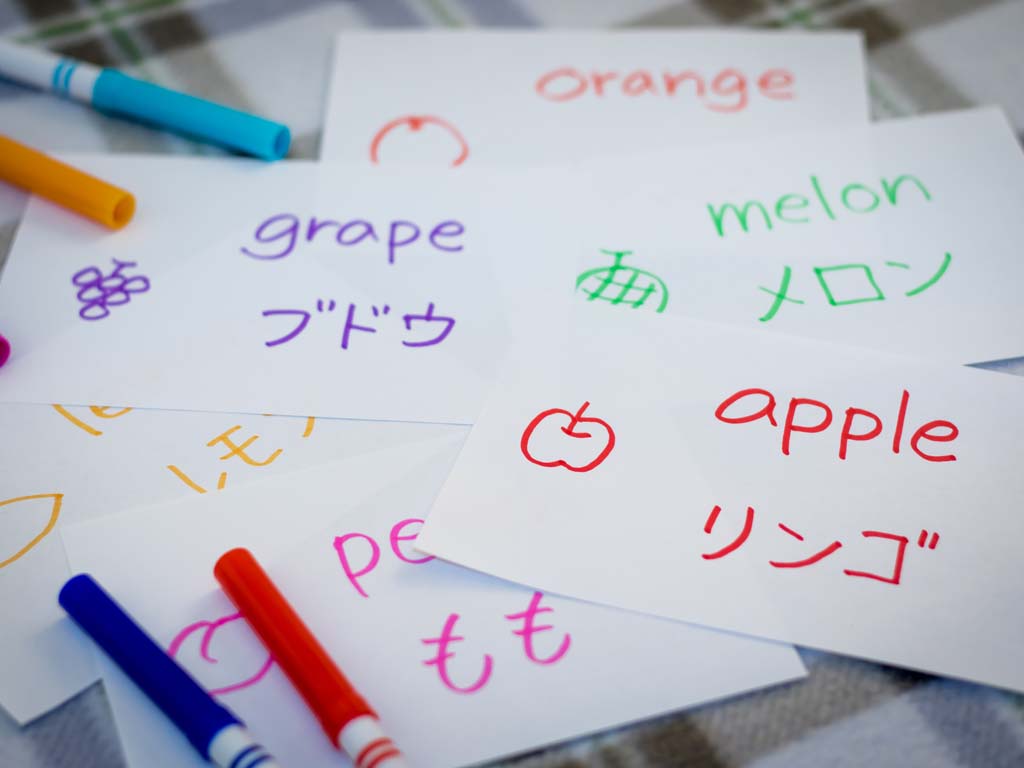 orange
melon
メロン
grape
ブドウ
apple
リンゴ
レモ
pe
もも